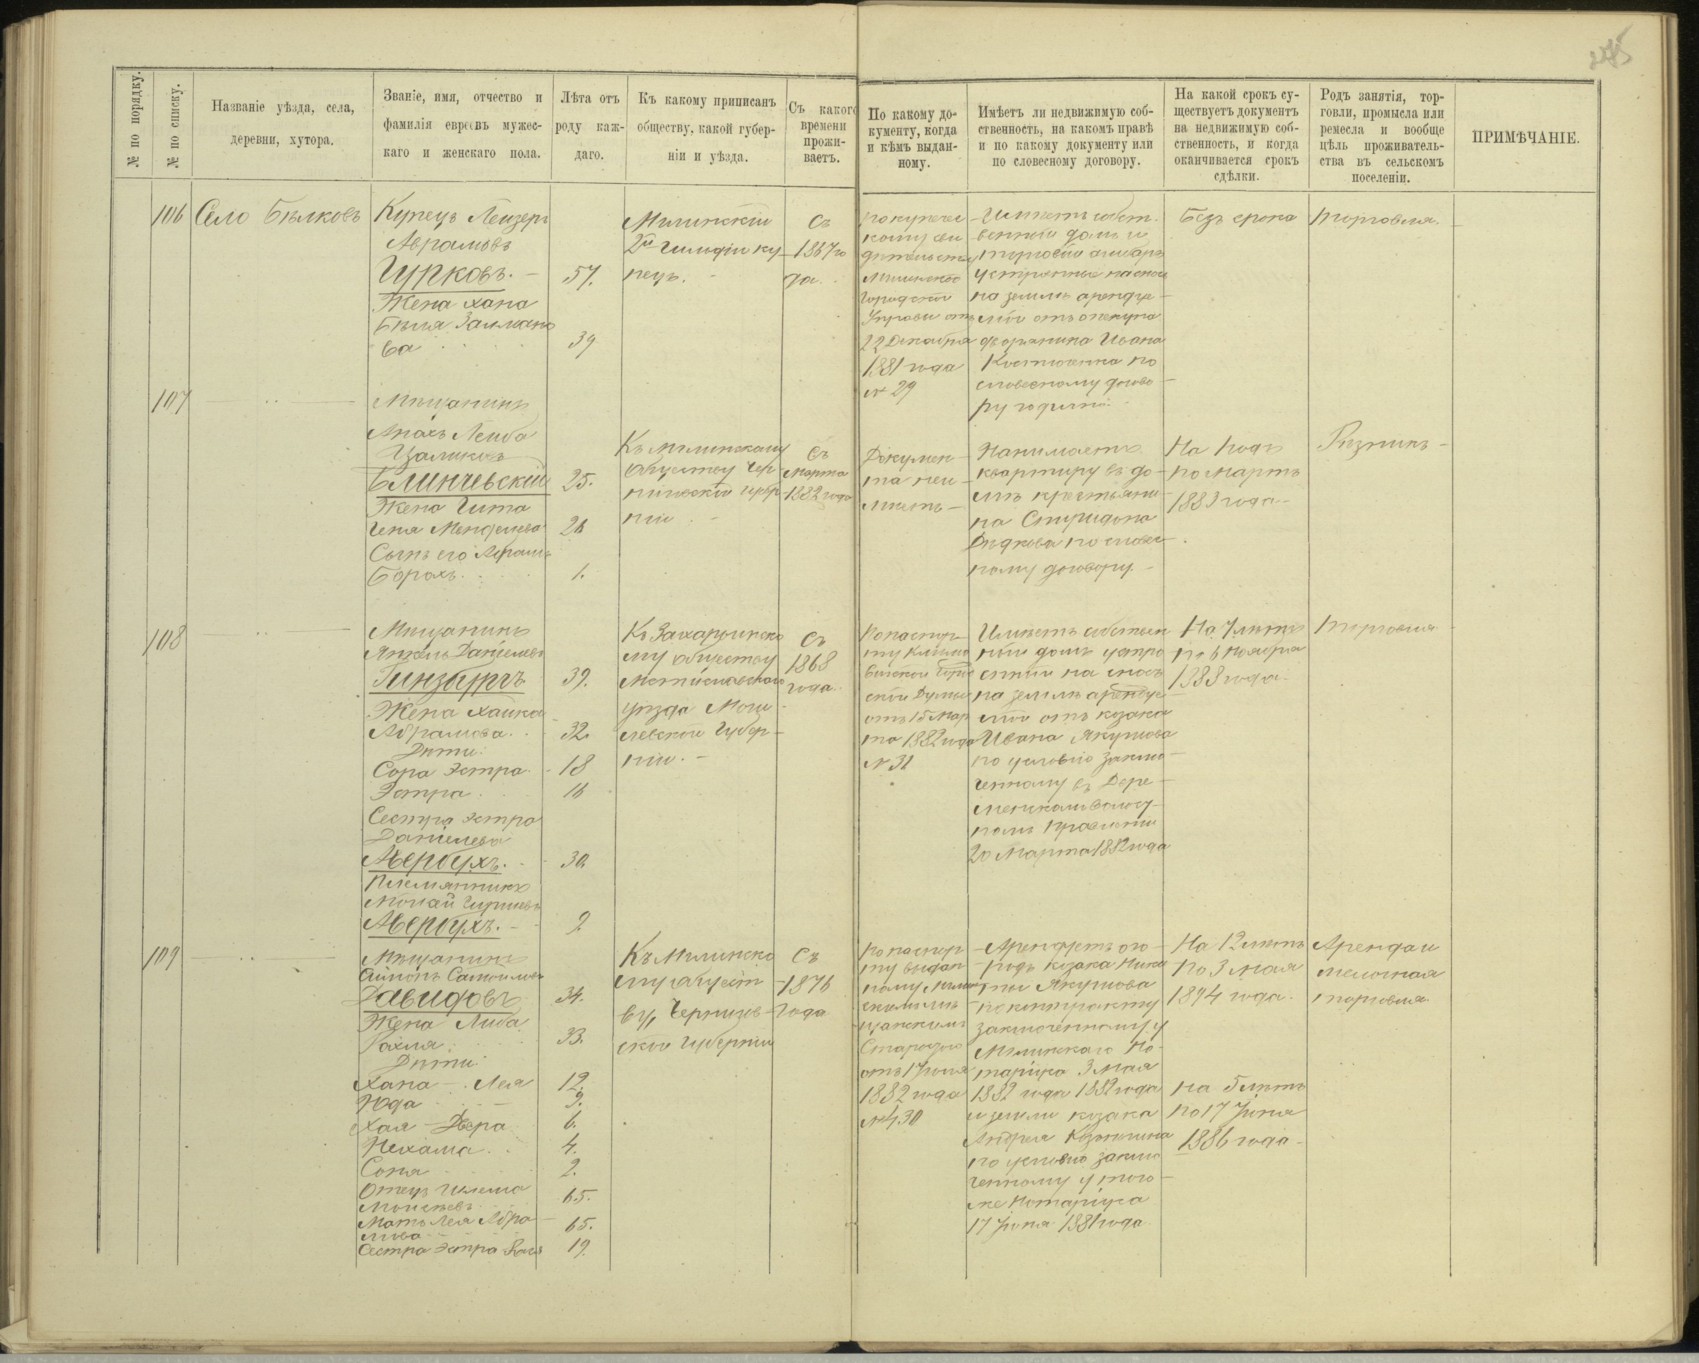 275
№ по порядку.
№ по списку.
Названіе уѣзда, села,
деревни, хутора.
Званіе, имя, отчество и
фамилія евреевъ мужес-
каго и женскаго пола.
Лѣта отъ
роду каж-
даго.
Къ какому приписанъ
обществу, какой губер-
ніи и уѣзда.
Съ какого
времени
прожи-
ваетъ.
По какому до-
кументу, когда
и кѣмъ выдан-
ному.
Имѣетъ ли недвижимую соб-
ственность, на какомъ правѣ
и по какому документу или
по словесному договору.
На какой срокъ су-
ществуетъ документъ
на недвижимую соб-
ственность, и когда
оканчивается срокъ
сдѣлки.
Родъ занятія, тор-
говли, промысла или
ремесла и вообще
цѣль проживатель-
ства въ сельскомъ
поселеніи.
ПРИМѢЧАНІЕ.
106
Село Бѣлковъ
Купецъ Лейзеръ
Абрамовъ
Гурковъ. 57.
Жена Хана
Бейля Залмано
ва 39
Мглинскій
2й Гильдіи ку
пецъ.
Съ
1867 го
да.
по купечес
кому сви
дѣтельству
Мглинской
Городской
Управы отъ
22 Декабря
1881 года
№ 29
Имѣетъ собст.
венный домъ и
торговый амбаръ
устроенные на своей
на землѣ арендуе
мой отъ опекуна
дворянина Ивана
Костюченка по
словесному догово
ру годично.
Безъ срока
торговля.
107
Мѣщанинъ
Лейба
Блинчевскій 25.
Жена Гита
Геня Менделева 26
Сынъ его Абрамъ
Борохъ. 1.
Къ Мглинскому
обществу Чер
ниговской Губер
ніи
Съ
марта
1882 года
Докумен
та неи
мѣетъ
Нанимаетъ
квартиру въ до
мѣ крестьяни
на Спиридона
Дѣдкова по словес
ному договору.
На 1 годъ
по мартъ
1883 года
Рѣзникъ
108
Мѣщанинъ
Янкель Даніелевъ
Гинзбургъ 39.
Жена Хайка
Абрамова 32.
Дѣти:
Сора Эстра 18
Эстра 16
Сестра Эстра
Даніелева
Авербухъ. 30
Племянникъ
Авербухъ. 2
Къ Захаринско
му обществу
Мстиславскаго
уѣзда Моги
левской Губер
ніи.
Съ
1868
года.
По паспор
ту Климо
вичской Город
ской Думы
отъ 15 Мар
та 1882 года
№ 31
Имѣетъ собствен
ный домъ устро
енный на своей
на землѣ арендуе
мой отъ козака
Ивана Якушова
по условію заклю
ченному въ Дере
менскомъ Волост
номъ Правленіи
20 Марта 1882 года
На 7 лѣтъ
по 6 Ноября
1888 года.
торговля
109
Мѣщанинъ
Симонъ Самойловъ
Давидовъ 34.
Жена Либа
Рохля 33.
Дѣти
Хана Лея 12.
Юда 9.
Хая Двера 6.
Нехама 4.
Соня 2.
Отецъ Шлема
Моисеевъ 65.
Мать Лея Абра
мова 65.
Сестра Эстра 19.
Къ Мглинско
му общест
ву, Чернигов
ской Губерніи
Съ
1876
года
По паспор
ту выдан
ному Мглин
скимъ мѣ
щанскимъ
Старостою
отъ 1 Іюля
1882 года
№ 430
Арендуетъ ого
родъ козака Ники
ты Якушова
по контракту
заключенному у
Мглинскаго Но
таріуса 3 мая
1882 года 1882 года
и земли козака
Андрея
по условію заклю
ченному у того
же Нотаріуса
17 Іюня 1881 года
На 12 лѣтъ
по 3 мая
1894 года.
на 5 лѣтъ
по 17 Іюня
1886 года
Аренда и
мелочная
торговля